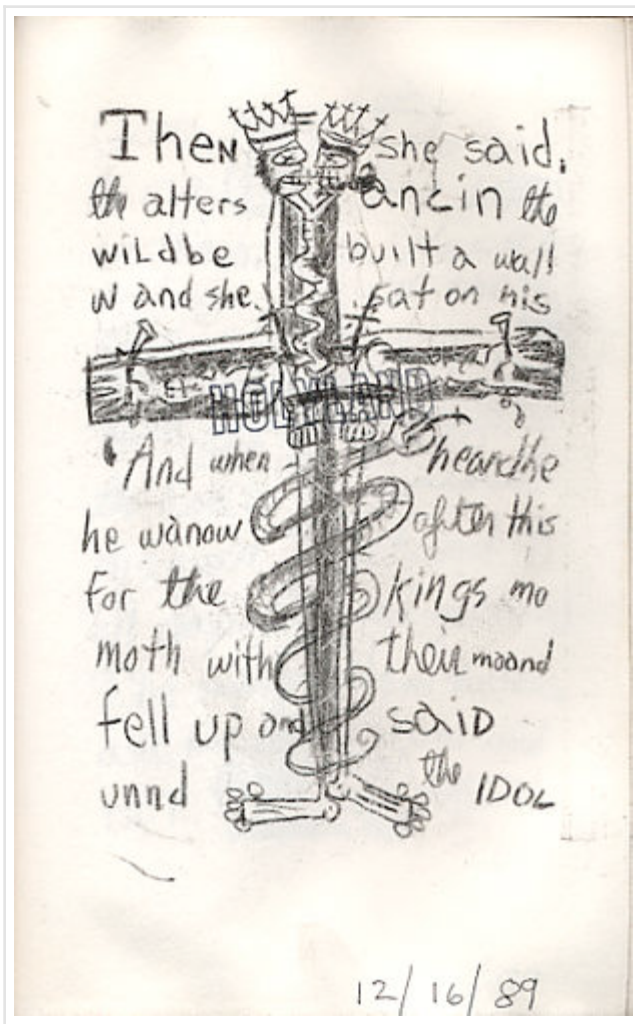 Then she said.
the alters ancin the
wildbe built a wall
w and she. sat on his
HOLYLAND
And when heardhe
he wanow after this
For the kings mo
moth with their moand
fell up and said
unnd the IDOL
12/16/89